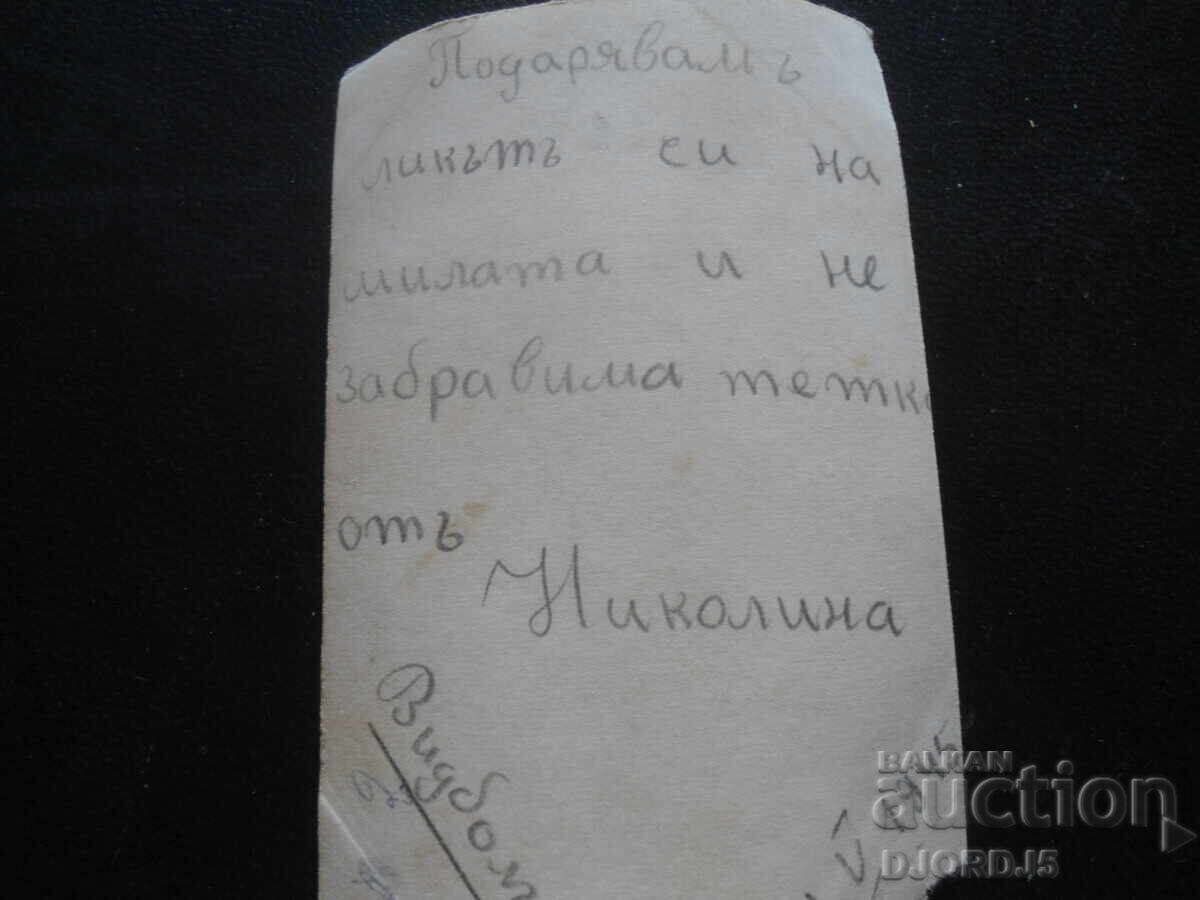 Подарявамъ
ликътъ си на
милата и не
забравима тетка
отъ
Николина
Видбол
BALKAN
auction
DJORDJ5